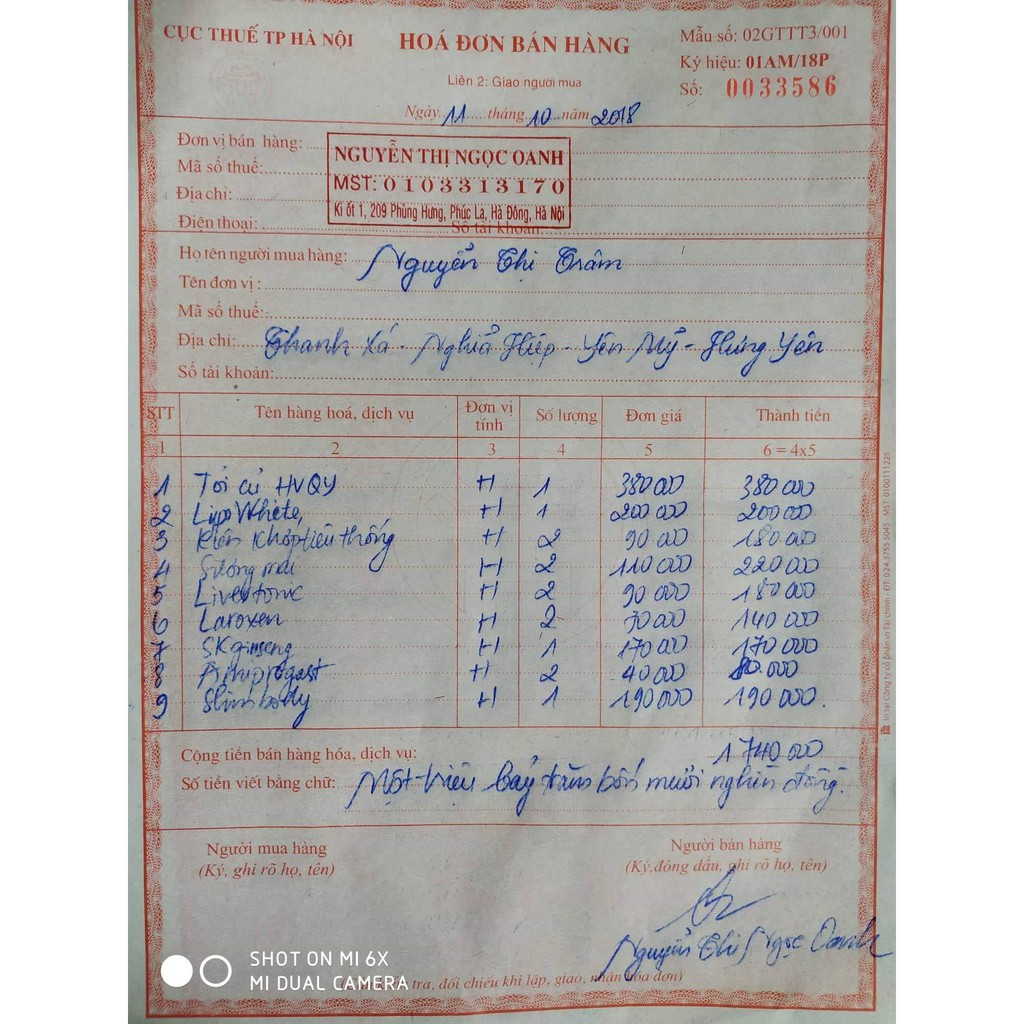 CỤC THUẾ TP HÀ NỘI
HOÁ ĐƠN BÁN HÀNG
Mẫu số: 02GTTT3/001
Ký hiệu: 01AM/18P
Số: 0033586
Liên 2: Giao người mua
Ngày 11 tháng 10 năm 2018
Đơn vị bán hàng:
NGUYỄN THỊ NGỌC OANH
Mã số thuế:
MST: 0103313170
Địa chỉ:
Ki ốt 1, 209 Phùng Hưng, Phúc La, Hà Đông, Hà Nội
Điện thoại: Số tài khoản:
Họ tên người mua hàng: Nguyễn Thị Trâm
Tên đơn vị :
Mã số thuế:
Địa chỉ: Thanh Xá - Nghĩa Hiệp - Yên Mỹ - Hưng Yên
Số tài khoản:
STT Tên hàng hoá, dịch vụ Đơn vị tính Số lượng Đơn giá Thành tiền
1 2 3 4 5 6 = 4x5
1 Tỏi củ HVQY H 1 380 000 380 000
2 Lipo White H 1 200 000 200 000
3 Kiện khớp tiêu thống H 2 90 000 180 000
4 Sương mai H 2 110 000 220 000
5 Livertonic H 2 90 000 180 000
6 Laroxen H 2 70 000 140 000
7 SK ginseng H 1 170 000 170 000
8 H 2 40 000 80.000
9 Slimbody H 1 190 000 190 000
Cộng tiền bán hàng hóa, dịch vụ: 1 740 000
Số tiền viết bằng chữ: Một triệu bảy trăm bốn mươi nghìn đồng.
Người mua hàng
(Ký, ghi rõ họ, tên)
Người bán hàng
(Ký, đóng dấu, ghi rõ họ, tên)
Nguyễn Thị Ngọc Oanh
tra, đối chiếu khi lập, giao, nhận hóa đơn)
In tại Công ty cổ phần in Tài chính ĐT: 024 3755 5045 MST: 0100111225
SHOT ON MI 6X
MI DUAL CAMERA